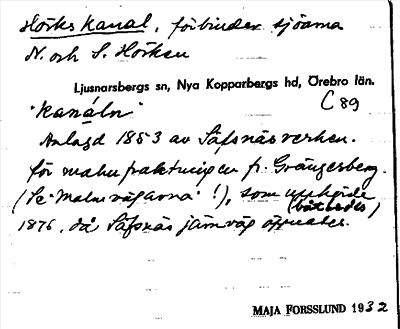 Hörks kanal, förbinder sjöarna
N. och S. Hörken
Ljusnarsbergs sn, Nya Kopparbergs hd, Örebro län.
C 89
"kanáln"
Anlagd 1853 av Säfsnäsverken.
för malmfraktningen fr. Grängesberg.
(Se "Malmvägarna"!), som upphörde
(båtleden)
1876, då Säfsnäs järnväg öppnades.
MAJA FORSSLUND 1932